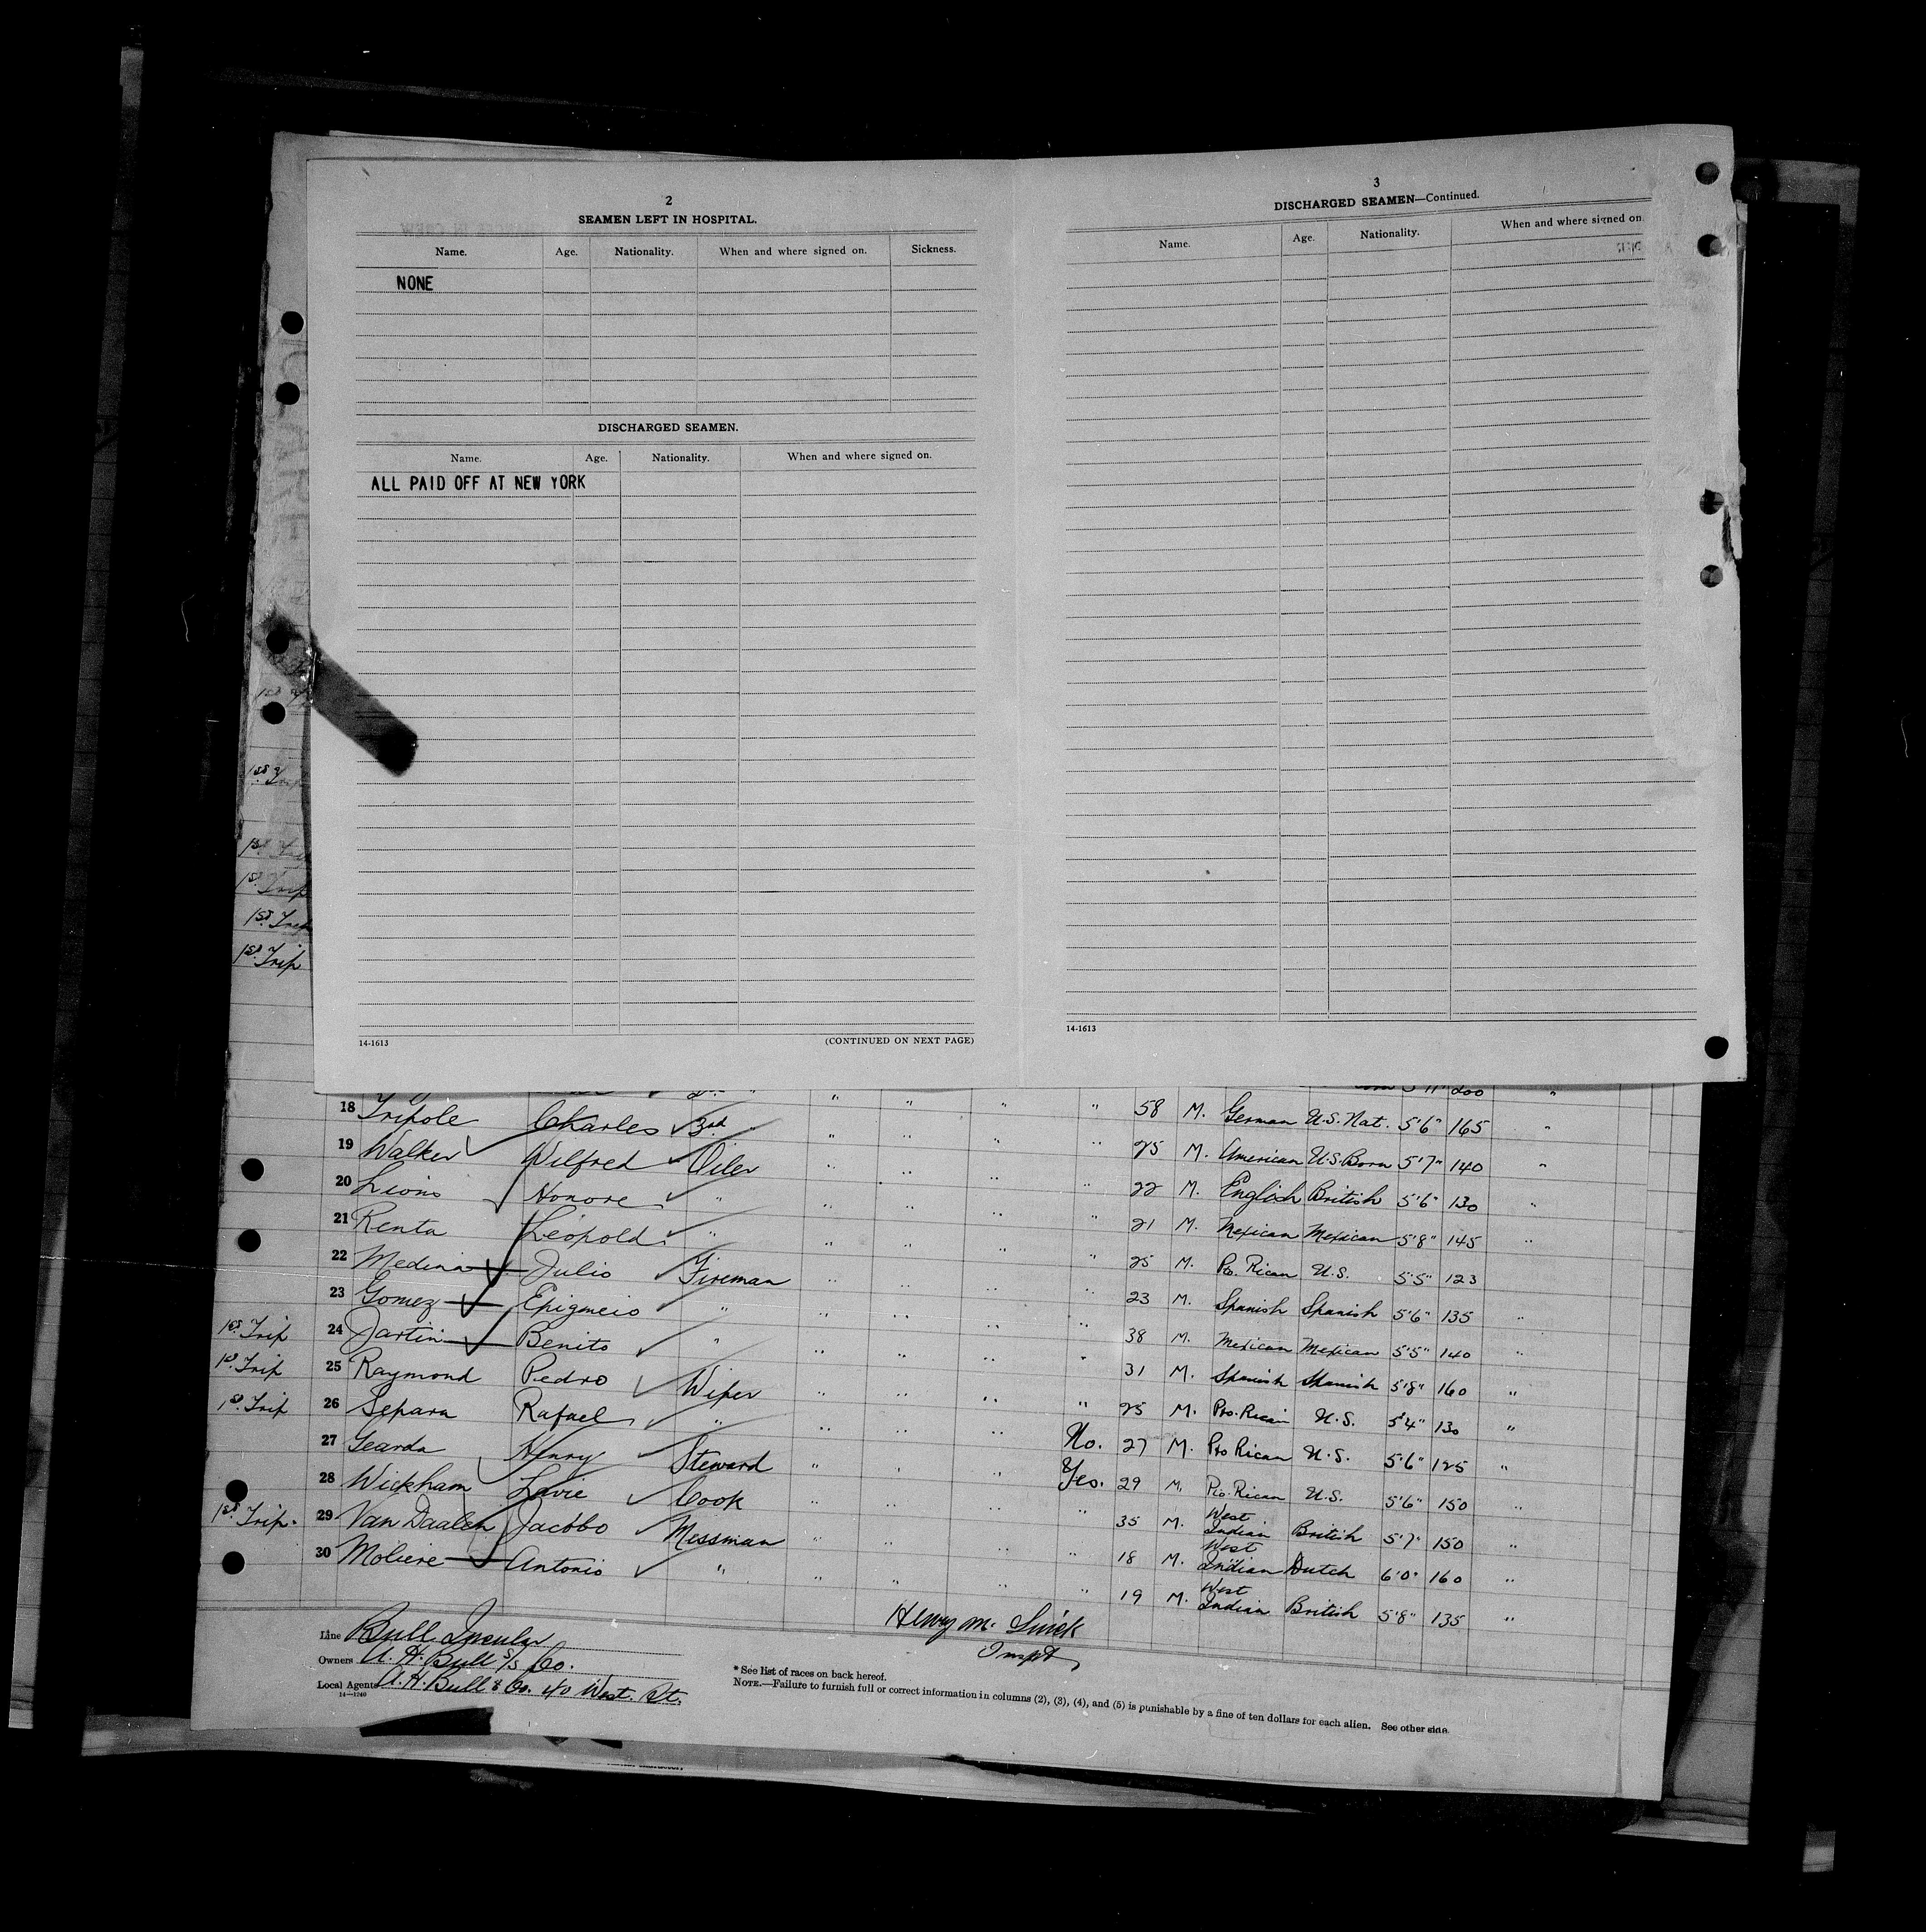 2
SEAMEN LEFT IN HOSPITAL.
Name. Age. Nationality. When and where signed on. Sickness.
NONE
DISCHARGED SEAMEN.
Name. Age. Nationality. When and where signed on.
ALL PAID OFF AT NEW YORK
14-1613 (CONTINUED ON NEXT PAGE)
3
DISCHARGED SEAMEN—Continued.
Name. Age. Nationality. When and where signed on.
14-1613
1st Trip
1st Trip
1st Trip
1st Trip
200 "
18 Tripole Charles 3rd " " " " 58 M. German U.S. Nat. 5'6" 165 "
19 Walker Wilfred Oiler " " " " 25 M. American U.S. Born 5'7" 140 "
20 Honore " " " " " 22 M. English British 5'6" 130 "
21 Renta Leopold " " " " " 21 M. Mexican Mexican 5'8" 145 "
22 Medina Julio Fireman " " " " 25 M. Po. Rican U.S. 5'5" 123
23 Gomez Epigmeio " " " " " 23 M. Spanish Spanish 5'6" 135 "
1st Trip 24 Benito " " " " " 38 M. Mexican Mexican 5'5" 140 "
1st Trip 25 Raymond Pedro Wiper " " " " 31 M. Spanish Spanish 5'8" 160 "
1st Trip 26 Separa Rafael " " " " " 25 M. Pto. Rican U.S. 5'4" 130 "
27 Gearda Henry Steward " " " No. 27 M. Pto Rican U.S. 5'6" 125 "
28 Wickham Cook " " " Yes. 29 M. Po. Rican U.S. 5'6" 150 "
1st Trip. 29 Van Daalen Jacobo Messman " " " " 35 M. West Indian British 5'7" 150 "
30 Moliere Antonio " " " " " 18 M. West Indian Dutch 6'0" 160 "
19 M. West Indian British 5'8" 135 "
Line Bull Insular
Owners A. H. Bull S/S Co.
Local Agents A. H. Bull & Co. 40 West. St.
14—1240
Henry M.
Inspt
* See list of races on back hereof.
NOTE.—Failure to furnish full or correct information in columns (2), (3), (4), and (5) is punishable by a fine of ten dollars for each alien. See other side.